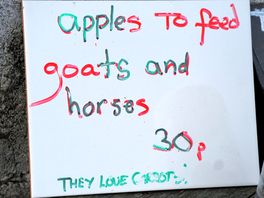 apples To feed
goats and
horses
30p
THEY LOVE